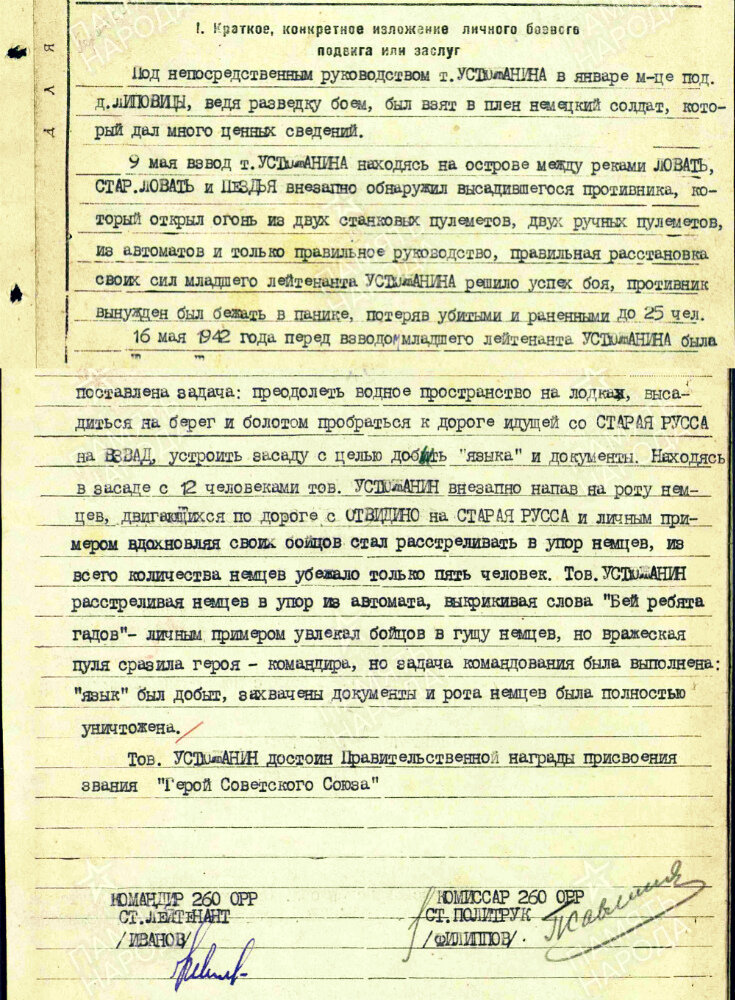 I. Краткое, конкретное изложение личного боевого
подвига или заслуг
Под непосредственным руководством т.УСТЮЖАНИНА в январе м-це под.
д.ЛИПОВИЦЫ, ведя разведку боем, был взят в плен немецкий солдат, кото-
рый дал много ценных сведений.
9 мая взвод т.УСТЮЖАНИНА находясь на острове между реками ЛОВАТЬ,
СТАР.ЛОВАТЬ и ПЕЗДЬЯ внезапно обнаружил высадившегося противника, ко-
торый открыл огонь из двух станковых пулеметов, двух ручных пулеметов,
из автоматов и только правильное руководство, правильная расстановка
своих сил младшего лейтенанта УСТЮЖАНИНА решило успех боя, противник
вынужден был бежать в панике, потеряв убитыми и раненными до 25 чел.
16 мая 1942 года перед взводом младшего лейтенанта УСТЮЖАНИНА была
поставлена задача: преодолеть водное пространство на лодках, выса-
диться на берег и болотом пробраться к дороге идущей со СТАРАЯ РУССА
на ВЗВАД, устроить засаду с целью добыть "языка" и документы. Находясь
в засаде с 12 человеками тов. УСТЮЖАНИН внезапно напав на роту нем-
цев, двигающихся по дороге с ОТВИДИНО на СТАРАЯ РУССА и личным при-
мером вдохновляя своих бойцов стал расстреливать в упор немцев, из
всего количества немцев убежало только пять человек. Тов.УСТЮЖАНИН
расстреливая немцев в упор из автомата, выкрикивая слова "Бей ребята
гадов"- личным примером увлекал бойцов в гущу немцев, но вражеская
пуля сразила героя - командира, но задача командования была выполнена:
"язык" был добыт, захвачены документы и рота немцев была полностью
уничтожена.
Тов. УСТЮЖАНИН достоин Правительственной награды присвоения
звания "Герой Советского Союза"
КОМАНДИР 260 ОРР
СТ.ЛЕЙТЕНАНТ
/ИВАНОВ/
КОМИССАР 260 ОРР
СТ.ПОЛИТРУК
/ФИЛИППОВ/.